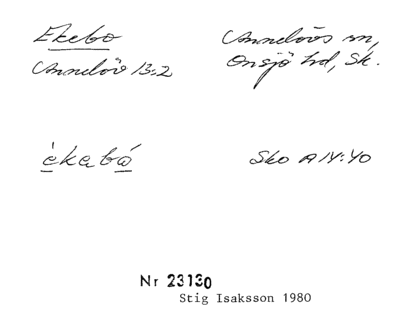 Ekebo
Annelöv 13:2
Annelövs sn,
Onsjö hd, Sk.
èkabá
Sko A IV:40
Nr 23130
Stig Isaksson 1980